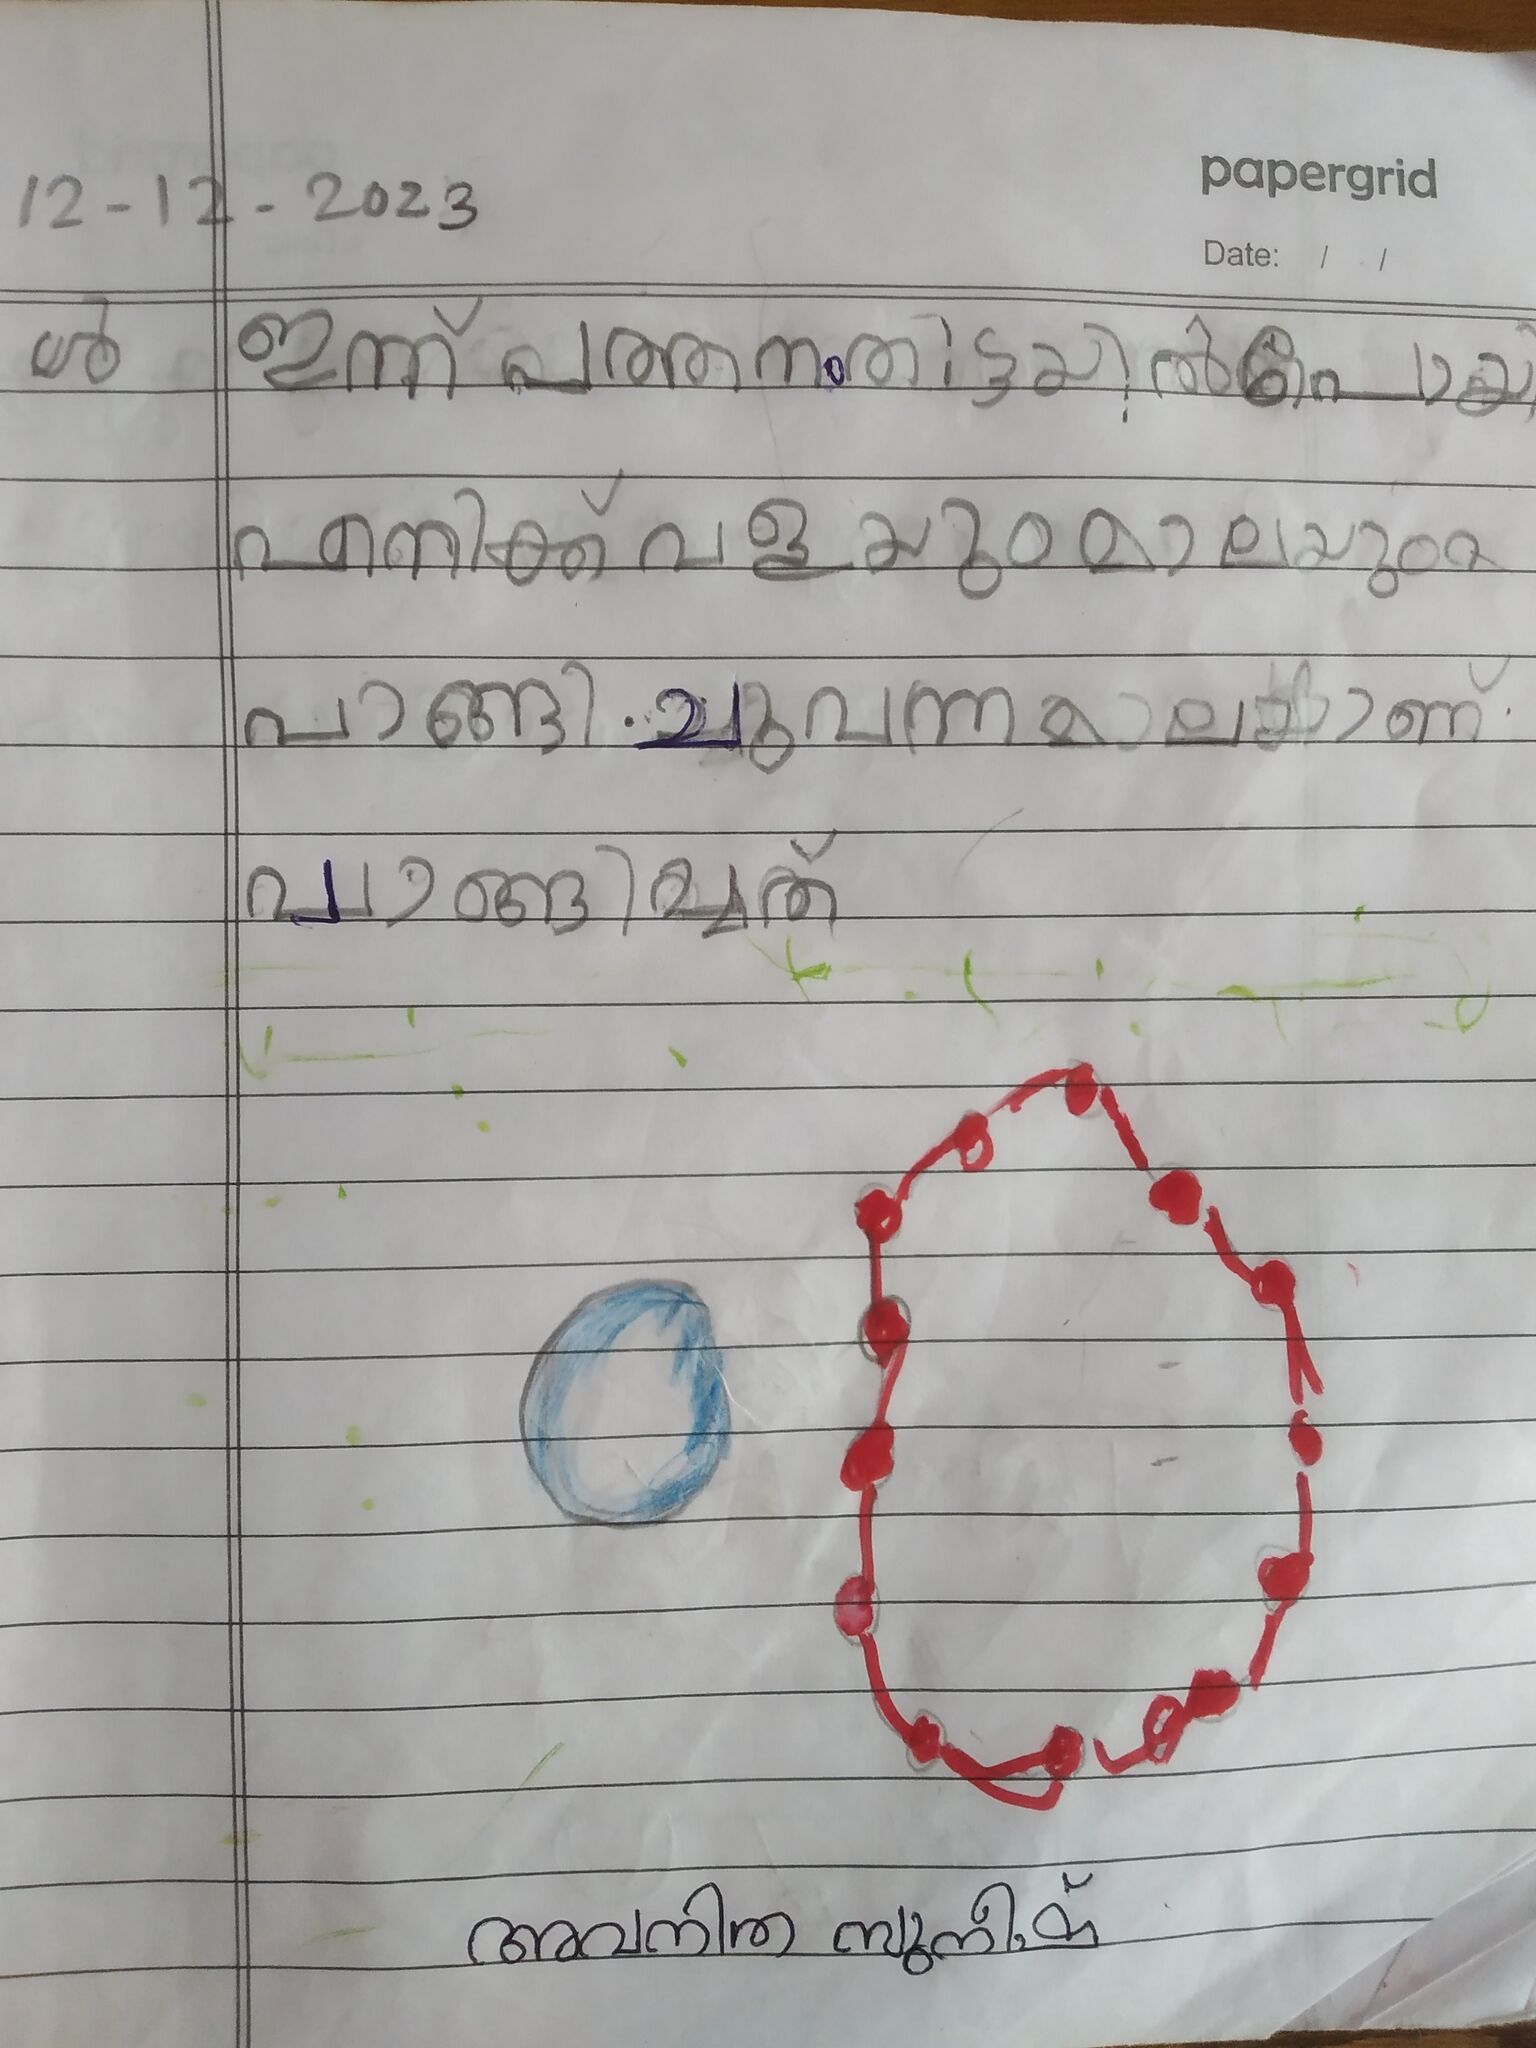 12-12-2023
papergrid
Date: / /
ഇന്ന് പത്തനംതിട്ടയിൽ പോയി
എനിക്ക് വളയും മാലയും
വാങ്ങി. ചുവന്ന മാലയാണ്
വാങ്ങിച്ചത്
അവനിത സുനീഷ്